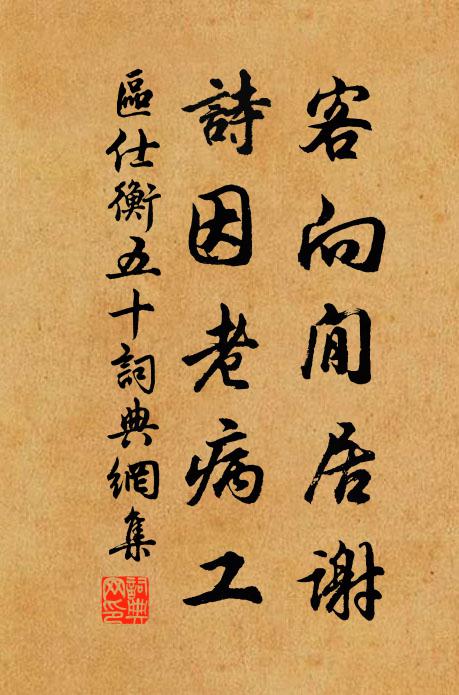 客向閒居謝
詩因老病工
區仕衡五十詞典網集
詞典網印